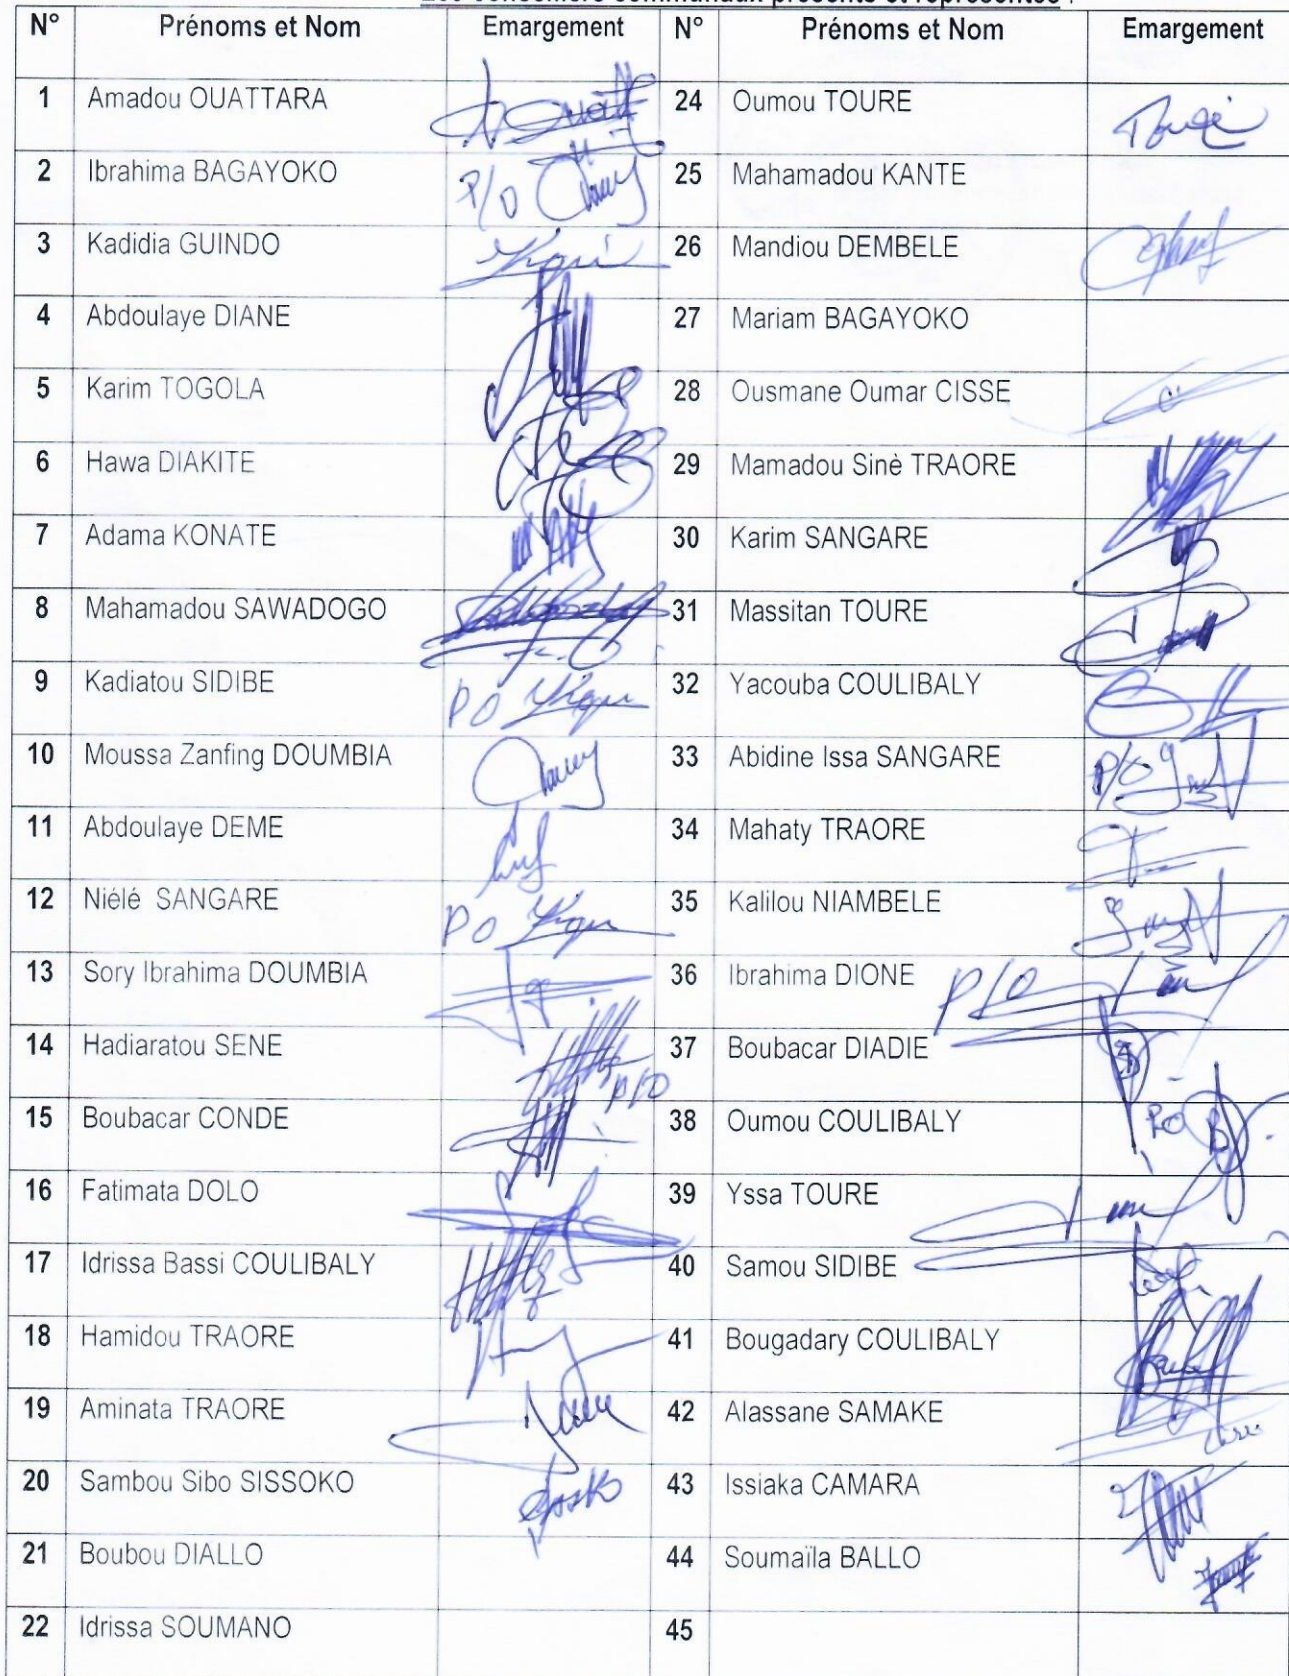 Les conseillers communaux présents et représentés :
N° Prénoms et Nom Emargement N° Prénoms et Nom Emargement
1 Amadou OUATTARA 24 Oumou TOURE
2 Ibrahima BAGAYOKO P/O 25 Mahamadou KANTE
3 Kadidia GUINDO 26 Mandiou DEMBELE
4 Abdoulaye DIANE 27 Mariam BAGAYOKO
5 Karim TOGOLA 28 Ousmane Oumar CISSE
6 Hawa DIAKITE 29 Mamadou Sinè TRAORE
7 Adama KONATE 30 Karim SANGARE
8 Mahamadou SAWADOGO 31 Massitan TOURE
9 Kadiatou SIDIBE PO 32 Yacouba COULIBALY
10 Moussa Zanfing DOUMBIA 33 Abidine Issa SANGARE P/O
11 Abdoulaye DEME 34 Mahaty TRAORE
12 Niélé SANGARE PO 35 Kalilou NIAMBELE
13 Sory Ibrahima DOUMBIA 36 Ibrahima DIONE P/O
14 Hadiaratou SENE P/O 37 Boubacar DIADIE
15 Boubacar CONDE 38 Oumou COULIBALY PO
16 Fatimata DOLO 39 Yssa TOURE
17 Idrissa Bassi COULIBALY 40 Samou SIDIBE
18 Hamidou TRAORE 41 Bougadary COULIBALY
19 Aminata TRAORE 42 Alassane SAMAKE
20 Sambou Sibo SISSOKO 43 Issiaka CAMARA
21 Boubou DIALLO 44 Soumaïla BALLO
22 Idrissa SOUMANO 45